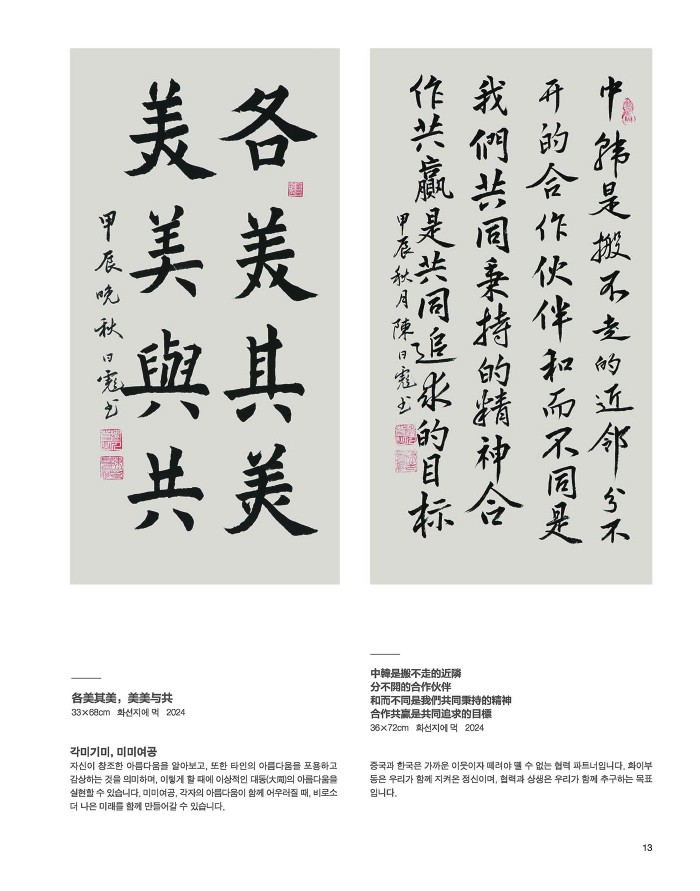 各美其美
美美與共
甲辰晚秋日书
中韩是搬不走的近邻分不
开的合作伙伴和而不同是
我們共同秉持的精神合
作共赢是共同追求的目标
甲辰秋月陳日书
各美其美，美美与共
33×68cm 화선지에 먹 2024
각미기미, 미미여공
자신이 창조한 아름다움을 알아보고, 또한 타인의 아름다움을 포용하고
감상하는 것을 의미하며, 이렇게 할 때에 이상적인 대동(大同)의 아름다움을
실현할 수 있습니다. 미미여공, 각자의 아름다움이 함께 어우러질 때, 비로소
더 나은 미래를 함께 만들어갈 수 있습니다.
中韓是搬不走的近隣
分不開的合作伙伴
和而不同是我們共同秉持的精神
合作共赢是共同追求的目標
36×72cm 화선지에 먹 2024
중국과 한국은 가까운 이웃이자 떼려야 뗄 수 없는 협력 파트너입니다. 화이부
동은 우리가 함께 지켜온 정신이며, 협력과 상생은 우리가 함께 추구하는 목표
입니다.
13